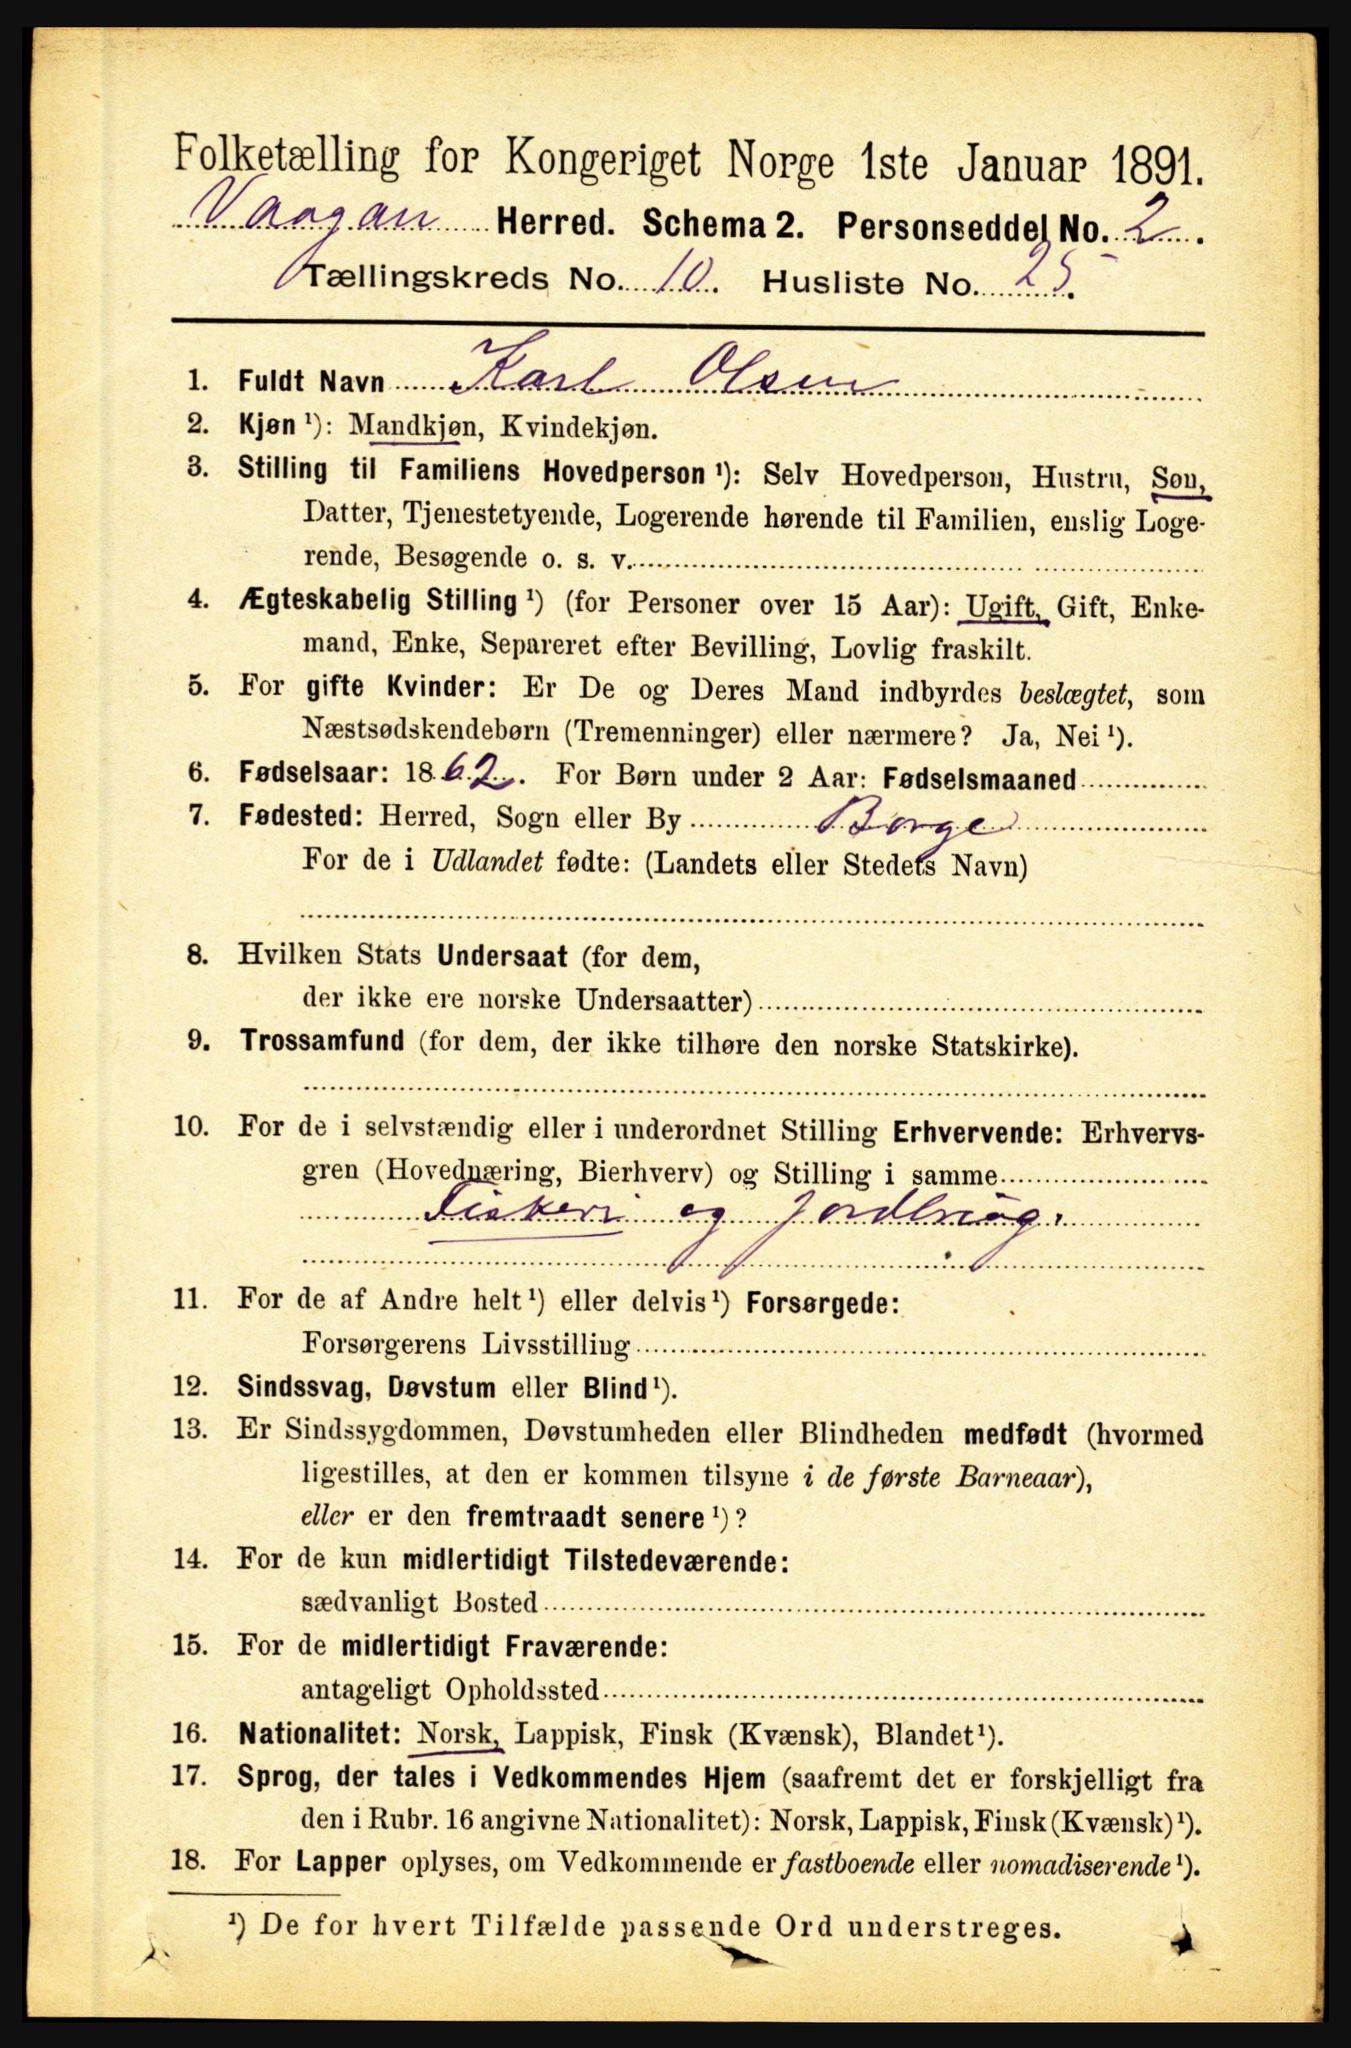 Folketælling for Kongeriget Norge 1ste Januar 1891.
Vaagan Herred. Schema 2. Personseddel No. 2.
Tællingskreds No. 10. Husliste No. 25.
1. Fuldt Navn Karl Olsen
2. Kjøn ¹): Mandkjøn, Kvindekjøn.
3. Stilling til Familiens Hovedperson ¹): Selv Hovedperson, Hustru, Søn,
Datter, Tjenestetyende, Logerende hørende til Familien, enslig Loge-
rende, Besøgende o. s. v.
4. Ægteskabelig Stilling ¹) (for Personer over 15 Aar): Ugift, Gift, Enke-
mand, Enke, Separeret efter Bevilling, Lovlig fraskilt.
5. For gifte Kvinder: Er De og Deres Mand indbyrdes beslægtet, som
Næstsødskendebørn (Tremenninger) eller nærmere? Ja, Nei ¹).
6. Fødselsaar: 1862. For Børn under 2 Aar: Fødselsmaaned
7. Fødested: Herred, Sogn eller By Borge
For de i Udlandet fødte: (Landets eller Stedets Navn)
8. Hvilken Stats Undersaat (for dem,
der ikke ere norske Undersaatter)
9. Trossamfund (for dem, der ikke tilhøre den norske Statskirke).
10. For de i selvstændig eller i underordnet Stilling Erhvervende: Erhvervs-
gren (Hovednæring, Bierhverv) og Stilling i samme
Fiskeri og Jordbrug.
11. For de af Andre helt ¹) eller delvis ¹) Forsørgede:
Forsørgerens Livsstilling
12. Sindssvag, Døvstum eller Blind ¹).
13. Er Sindssygdommen, Døvstumheden eller Blindheden medfødt (hvormed
ligestilles, at den er kommen tilsyne i de første Barneaar),
eller er den fremtraadt senere ¹)?
14. For de kun midlertidigt Tilstedeværende:
sædvanligt Bosted
15. For de midlertidigt Fraværende:
antageligt Opholdssted
16. Nationalitet: Norsk, Lappisk, Finsk (Kvænsk), Blandet ¹).
17. Sprog, der tales i Vedkommendes Hjem (saafremt det er forskjelligt fra
den i Rubr. 16 angivne Nationalitet): Norsk, Lappisk, Finsk (Kvænsk) ¹).
18. For Lapper oplyses, om Vedkommende er fastboende eller nomadiserende ¹).
¹) De for hvert Tilfælde passende Ord understreges.